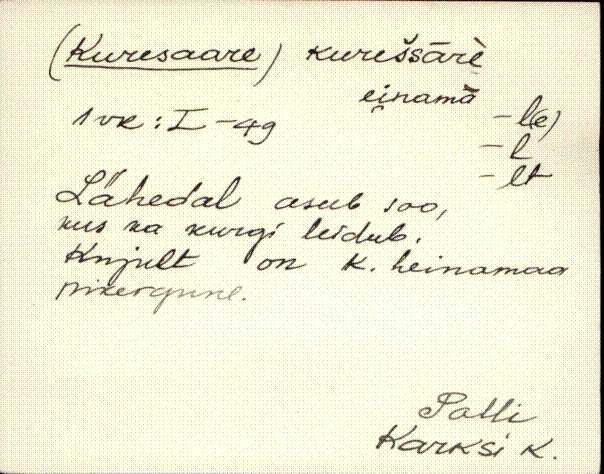 (Kuresaare) kureššārè
einamā
1 vk : I - 49 - l(e)
- l
- lt
Lähedal asub soo,
kus ka kurgi leidub.
Kujult on K. heinamaa
pikergune.
Polli
Karksi K.